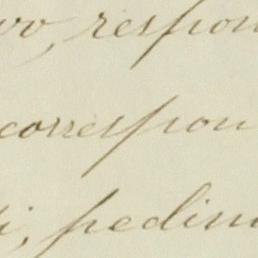 vo, respon
correspon
i, pedim